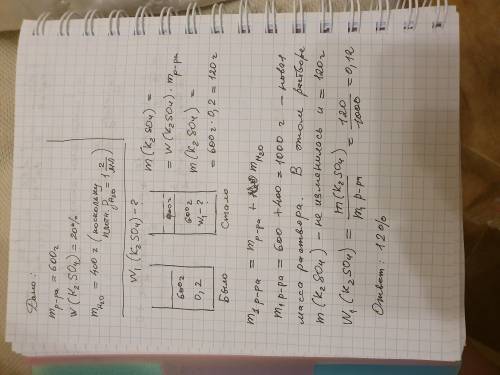 Дано:
m р-ра = 600г
W(K₂SO₄) = 20%
m H₂O = 400г (поскольку
плотн. ρ H₂O = 1 г/мл)
W₁(K₂SO₄) - ?
600г
0,2
Было
600г
W₁ - ?
Стало
m(K₂SO₄) =
= W(K₂SO₄) · m р-ра
m(K₂SO₄) =
= 600г · 0,2 = 120г
m₁ р-ра = m р-ра + m H₂O
m₁ р-ра = 600 + 400 = 1000 г — новая
масса раствора. В этом растворе
m(K₂SO₄) - не изменилось и = 120г
W₁(K₂SO₄) = m(K₂SO₄) / m₁ р-ра = 120 / 1000 = 0,12
Ответ: 12%